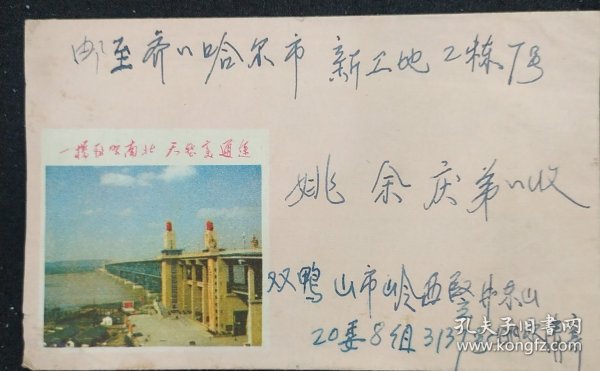 邮至齐〃哈尔市 新工地2栋7号
一桥飞架南北 天堑变通途
姚余庆弟〃收
双鸭山市岭西竪井东山
20委8组313
孔夫子旧书网
kongfz.com